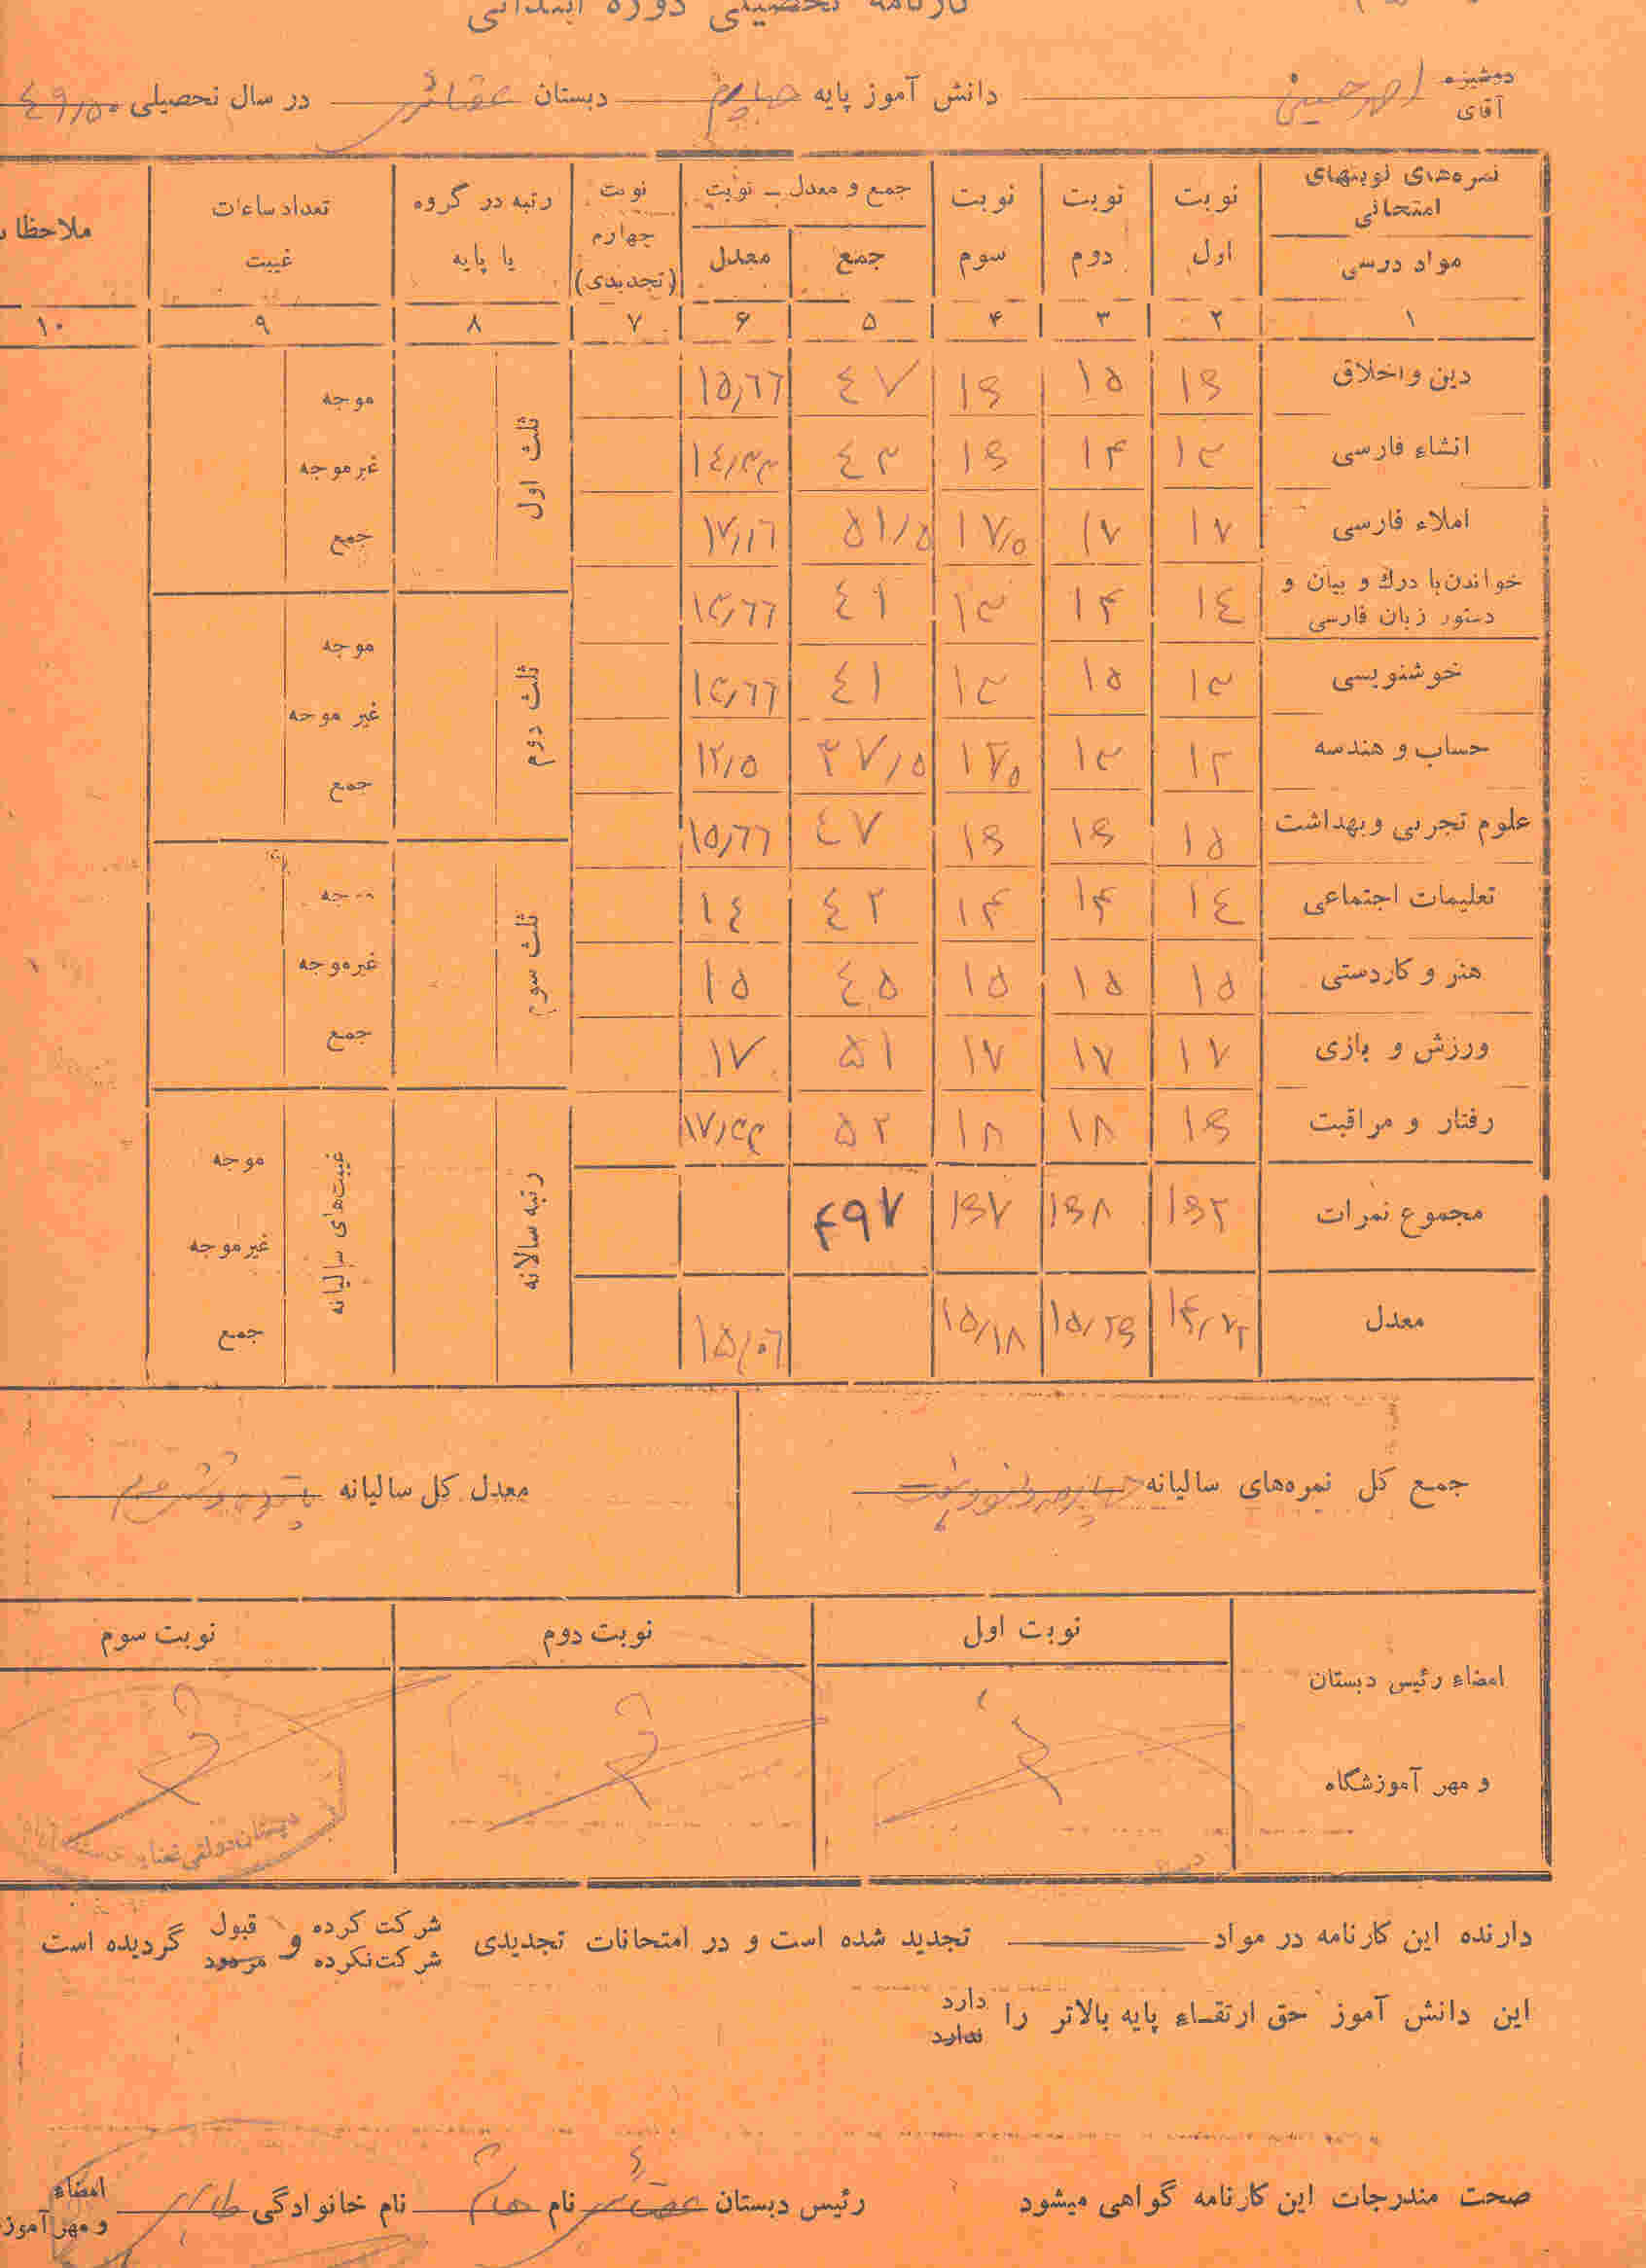 کارنامه تحصیلی دوره ابتدائی
دوشیزه
آقای احمد حسینی دانش آموز پایه چهارم دبستان عقائی در سال تحصیلی ٤٩/٥٠
نمره‌های نوبتهای امتحانی نوبت اول نوبت دوم نوبت سوم جمع و معدل ـ نوبت نوبت چهارم (تجدیدی) رتبه در گروه یا پایه تعداد ساعات غیبت ملاحظا
مواد درسی جمع معدل
۱ ۲ ۳ ۴ ۵ ۶ ۷ ۸ ۹ ۱۰
دین و اخلاق ۱۶ ۱۵ ۱۶ ٤۷ ۱۵/٦٦
انشاء فارسی ۱۳ ۱۴ ۱۶ ٤۳ ۱٤/۳۳
املاء فارسی ۱۷ ۱۷ ۱۷/۵ ۵۱/۵ ۱۷/۱٦
خواندن با درك و بیان و دستور زبان فارسی ۱٤ ۱۴ ۱۳ ٤۱ ۱۳/٦٦
خوشنویسی ۱۳ ۱۵ ۱۳ ٤۱ ۱۳/٦٦
حساب و هندسه ۱۲ ۱۳ ۱۲/۵ ۳۷/۵ ۱۲/۵
علوم تجربی و بهداشت ۱۵ ۱۶ ۱۶ ٤۷ ۱۵/٦٦
تعلیمات اجتماعی ۱٤ ۱۴ ۱۴ ٤۲ ۱٤
هنر و کاردستی ۱۵ ۱۵ ۱۵ ٤۵ ۱۵
ورزش و بازی ۱۷ ۱۷ ۱۷ ۵۱ ۱۷
رفتار و مراقبت ۱۶ ۱۸ ۱۸ ۵۲ ۱۷/۳۳
مجموع نمرات ۱۶۲ ۱۶۸ ۱۶۷ ۴۹۷
معدل ۱۴/۷۲ ۱۵/۲۶ ۱۵/۱۸ ۱۵/۰٦
ثلث اول موجه
غیر موجه
جمع
ثلث دوم موجه
غیر موجه
جمع
ثلث سوم موجه
غیر موجه
جمع
رتبه سالانه غیبت‌های سالیانه موجه
غیر موجه
جمع
جمع کل نمره‌های سالیانه چهارصد و نود و هفت معدل کل سالیانه پانزده و شش صدم
امضاء رئیس دبستان نوبت اول نوبت دوم نوبت سوم
و مهر آموزشگاه
دبستان دولتی
دارنده این کارنامه در مواد تجدید شده است و در امتحانات تجدیدی شرکت کرده شرکت نکرده و قبول مردود گردیده است
این دانش آموز حق ارتقاء پایه بالاتر را دارد ندارد
صحت مندرجات این کارنامه گواهی میشود رئیس دبستان نام نام خانوادگی امضاء
و مهر آموز